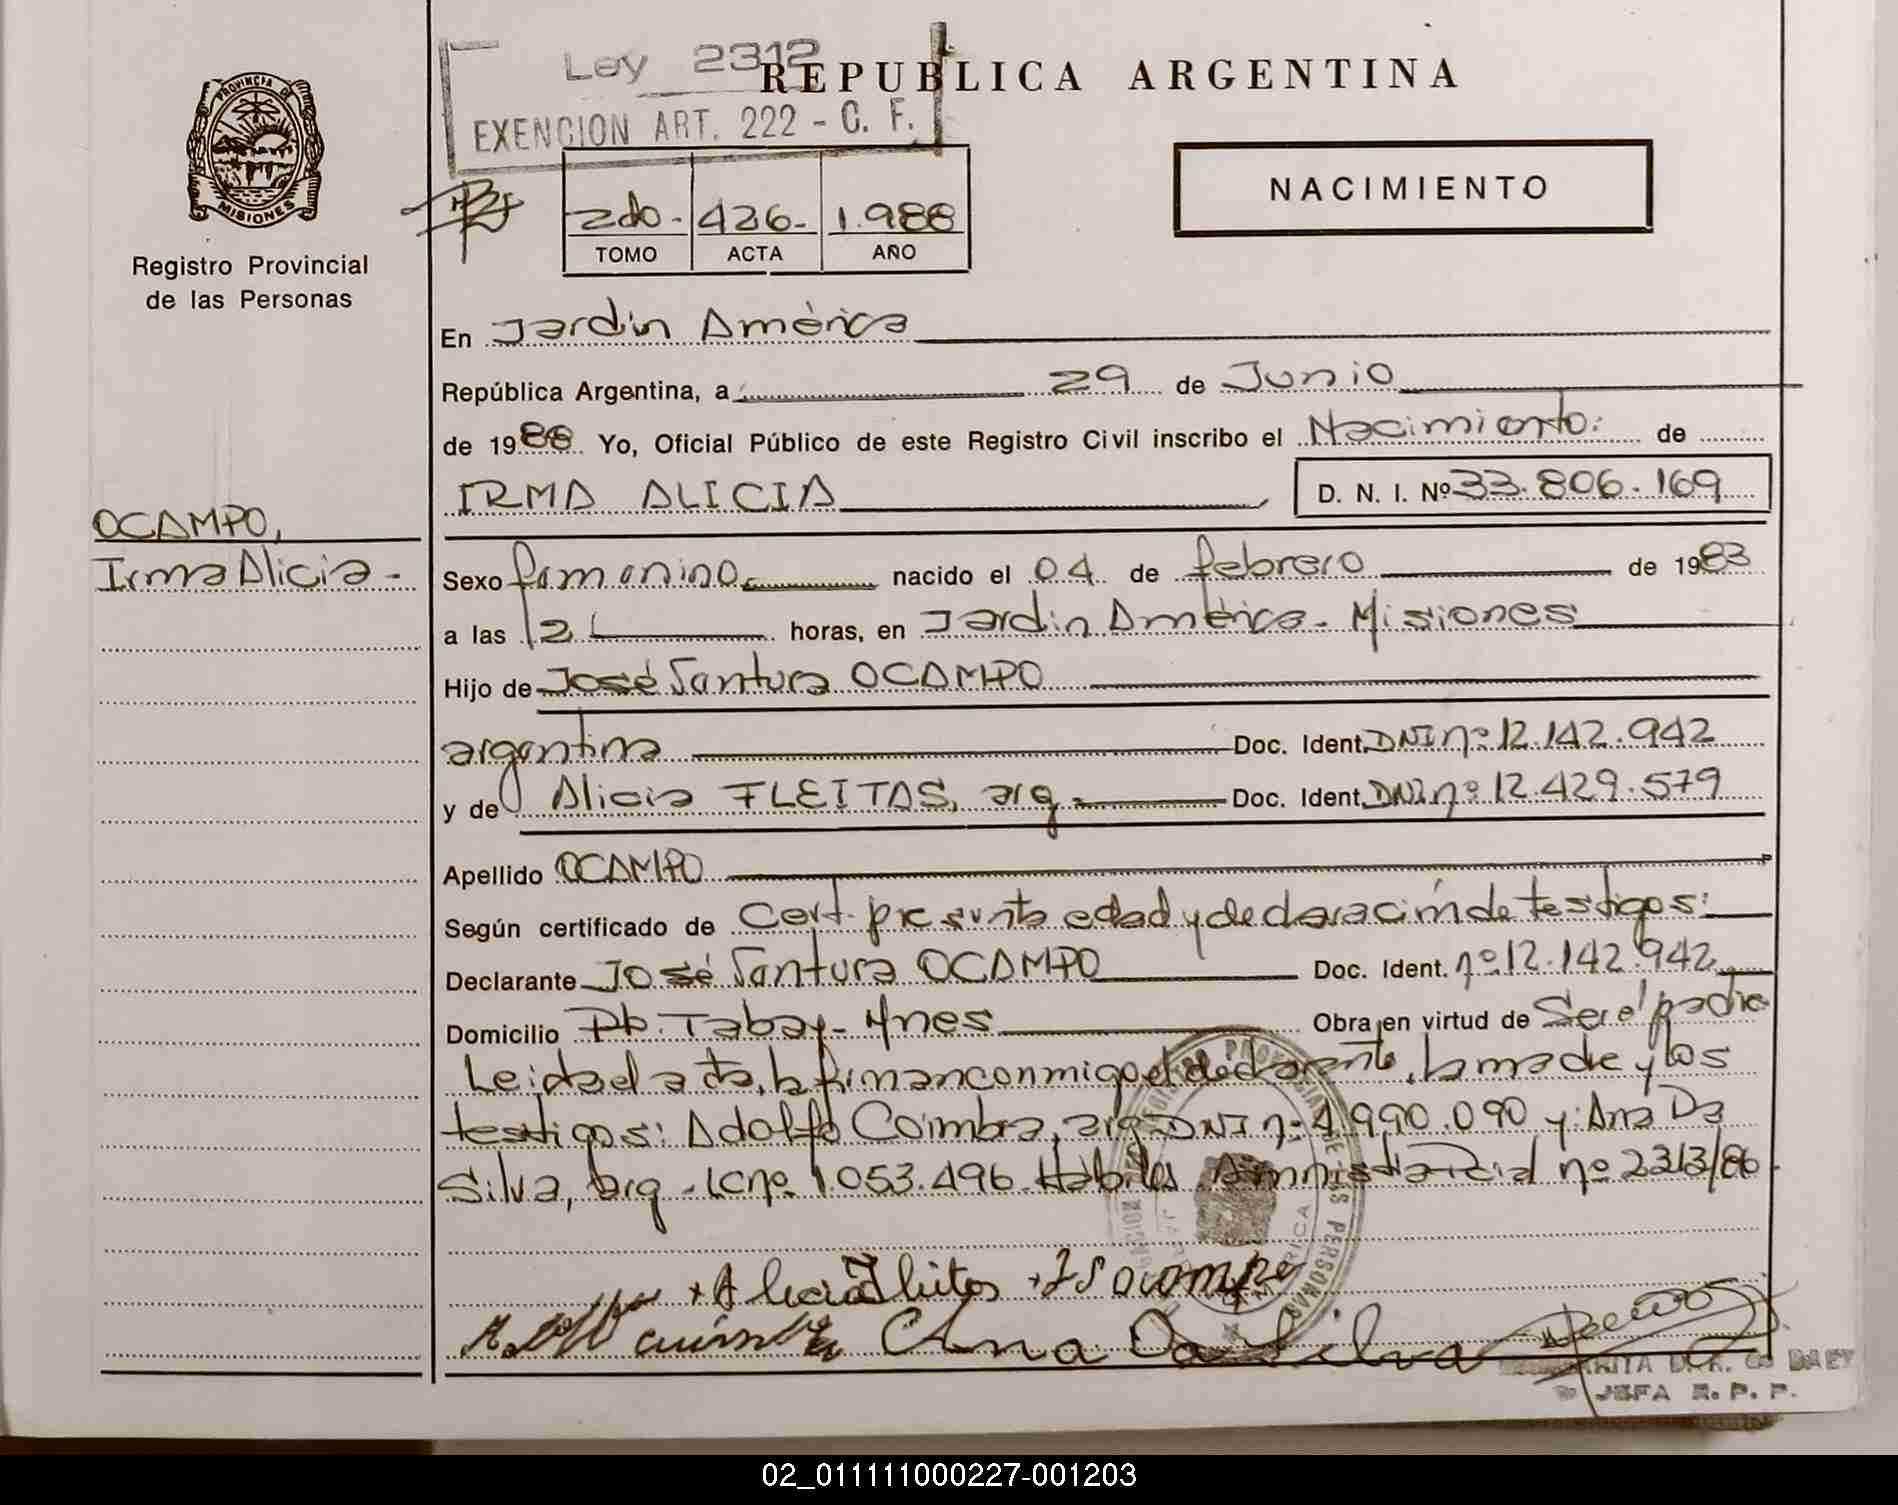 Ley 2312
EXENCION ART. 222 - C. F.
REPUBLICA ARGENTINA
PROVINCIA DE MISIONES
Registro Provincial
de las Personas
NACIMIENTO
2do.- 426- 1.988
TOMO ACTA AÑO
En Jardin América
República Argentina, a 29 de Junio
de 1988 Yo, Oficial Público de este Registro Civil inscribo el Nacimiento: de
IRMA ALICIA D. N. I. Nº 33.806.169
OCAMPO,
Irma Alicia -
Sexo femenino nacido el 04 de febrero de 1983
a las 12 horas, en Jardin América - Misiones
Hijo de José Santura OCAMPO
argentina Doc. Ident. DNI nº 12.142.942
y de Alicia FLEITAS, arg - Doc. Ident. DNI nº 12.429.579
Apellido OCAMPO
Según certificado de Cert. presunta edad y declaración de testigos:
Declarante José Santura OCAMPO Doc. Ident. nº 12.142.942
Domicilio Pb. Tabay - Mnes Obra en virtud de Ser el padre
Leida el acta, la firman conmigo el declarante, la madre y los
testigos: Adolfo Coimbra, arg DNI nº 4.990.090 y: Ana Da
Silva, arg - LC nº 1.053.496. Hábiles Amnistia Pcial nº 2313/86
+ Alicia Fleitas + JS ocampo
Ana Da Silva
JEFA R. P. P.
02_011111000227-001203